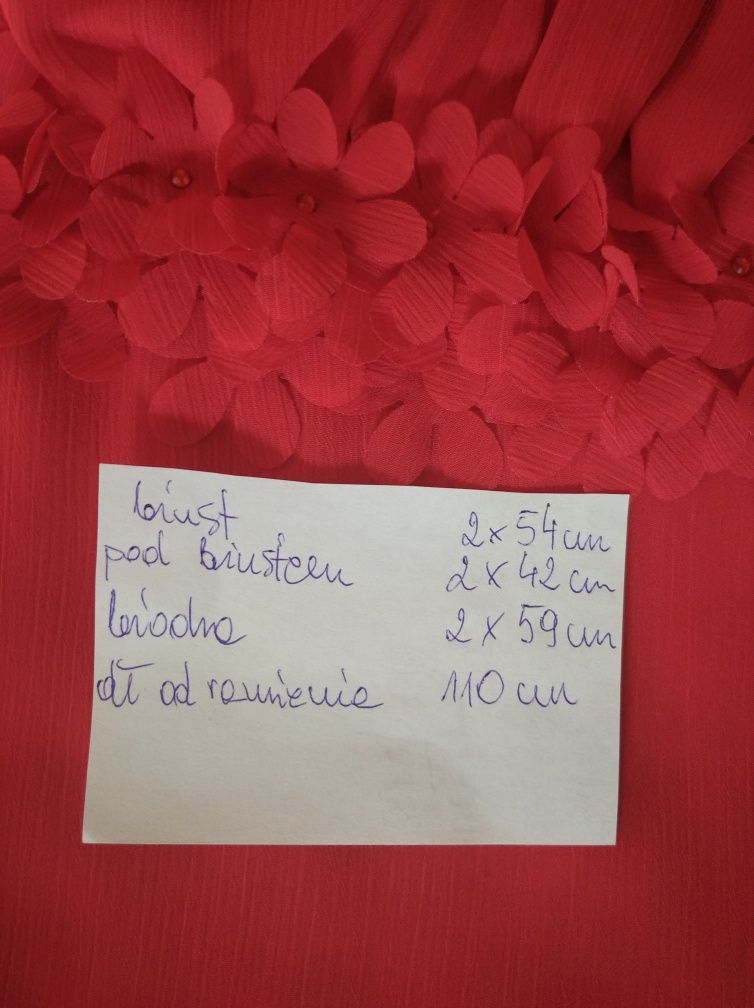 biust 2x54cm
pod biustem 2x42cm
biodra 2x59cm
dł od ramienia 110cm